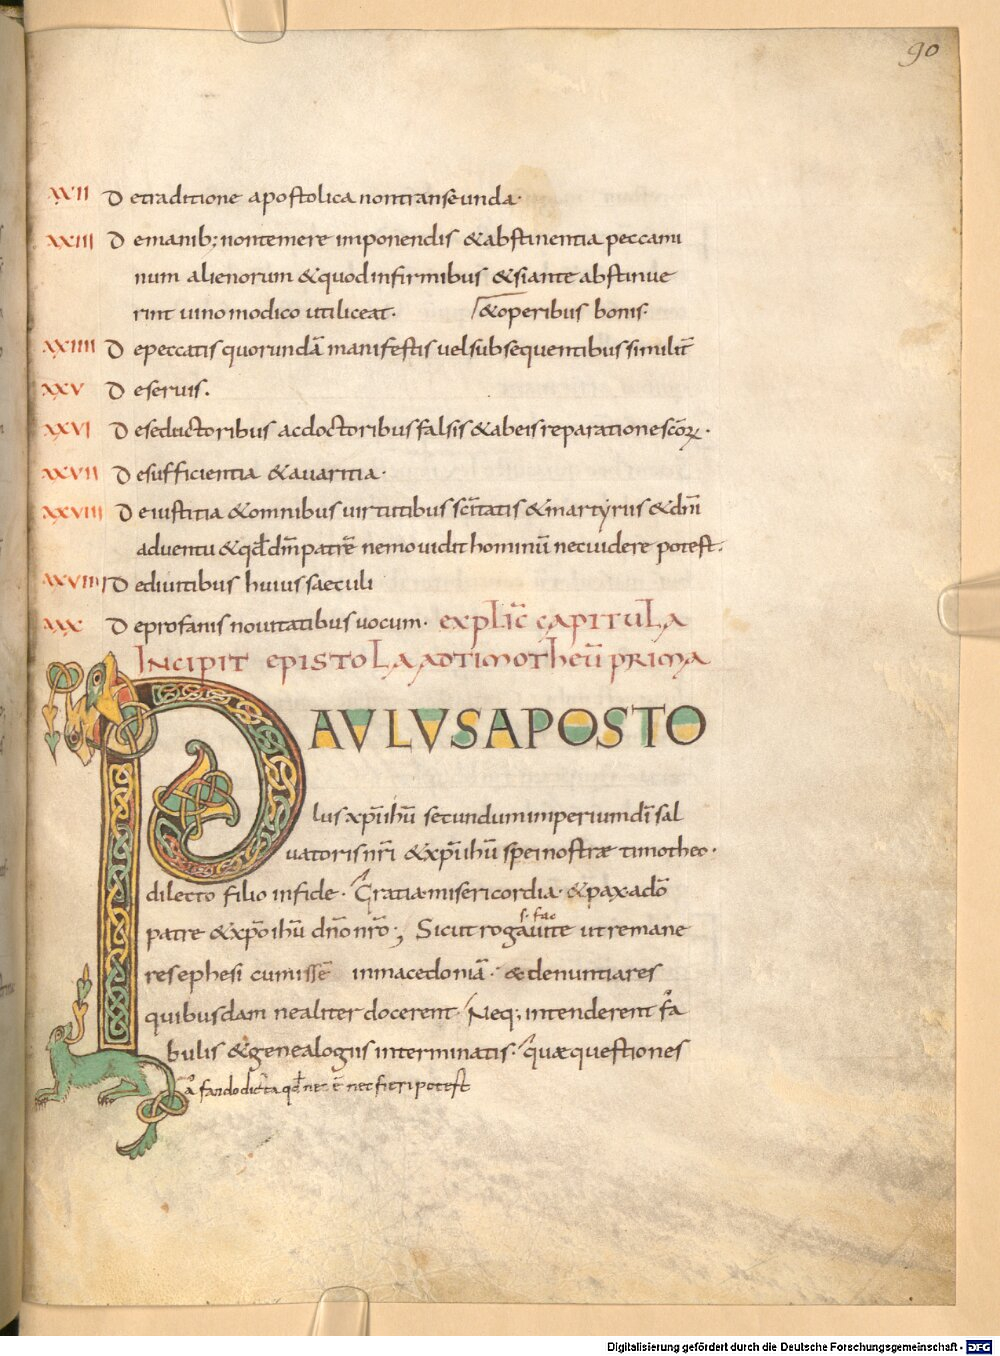 90
XXII De traditione apostolica non transeunda·
XXIII De manib; non temere imponendis & abstinentia peccami
num alienorum & quod infirmibus & si ante abstinue
rint uino modico uti liceat· & operibus bonis·
XXIIII De peccatis quorundā manifestis uel subsequentibus similit̄
XXV De seruis·
XXVI De seductoribus ac doctoribus falsis & ab eis reparatione scōꝝ·
XXVII De sufficientia & auaritia·
XXVIII De iustitia & omnibus uirtutibus sc̄itatis & martyrus & dn̄i
aduentu & qd̄ dm̄ patrē nemo uidit hominū nec uidere potest·
XXVIIII De diuitibus huius saeculi
XXX De profanis nouitatibus uocum· explic̄ capitula
Incipit epistola ad timotheū prima
PAULUS APOSTO
lus xp̄i ihū secundum imperium dī sal
uatoris nr̄i & xp̄i ihū spei nostræ timotheo·
dilecto filio in fide· Gratia misericordia· & pax a dō
patre & xp̄o ihū dn̄o nr̄o·, Sicut rogaui te ut remane
s· fac
res ephesi cum issē in macedoniā· & denuntiares
quibusdam ne aliter docerent· Neq; intenderent fa
bulis & genealogiis interminatis· quæ questiones
a fando dicta qd̄ nec ē nec fieri potest
Digitalisierung gefördert durch die Deutsche Forschungsgemeinschaft - DFG